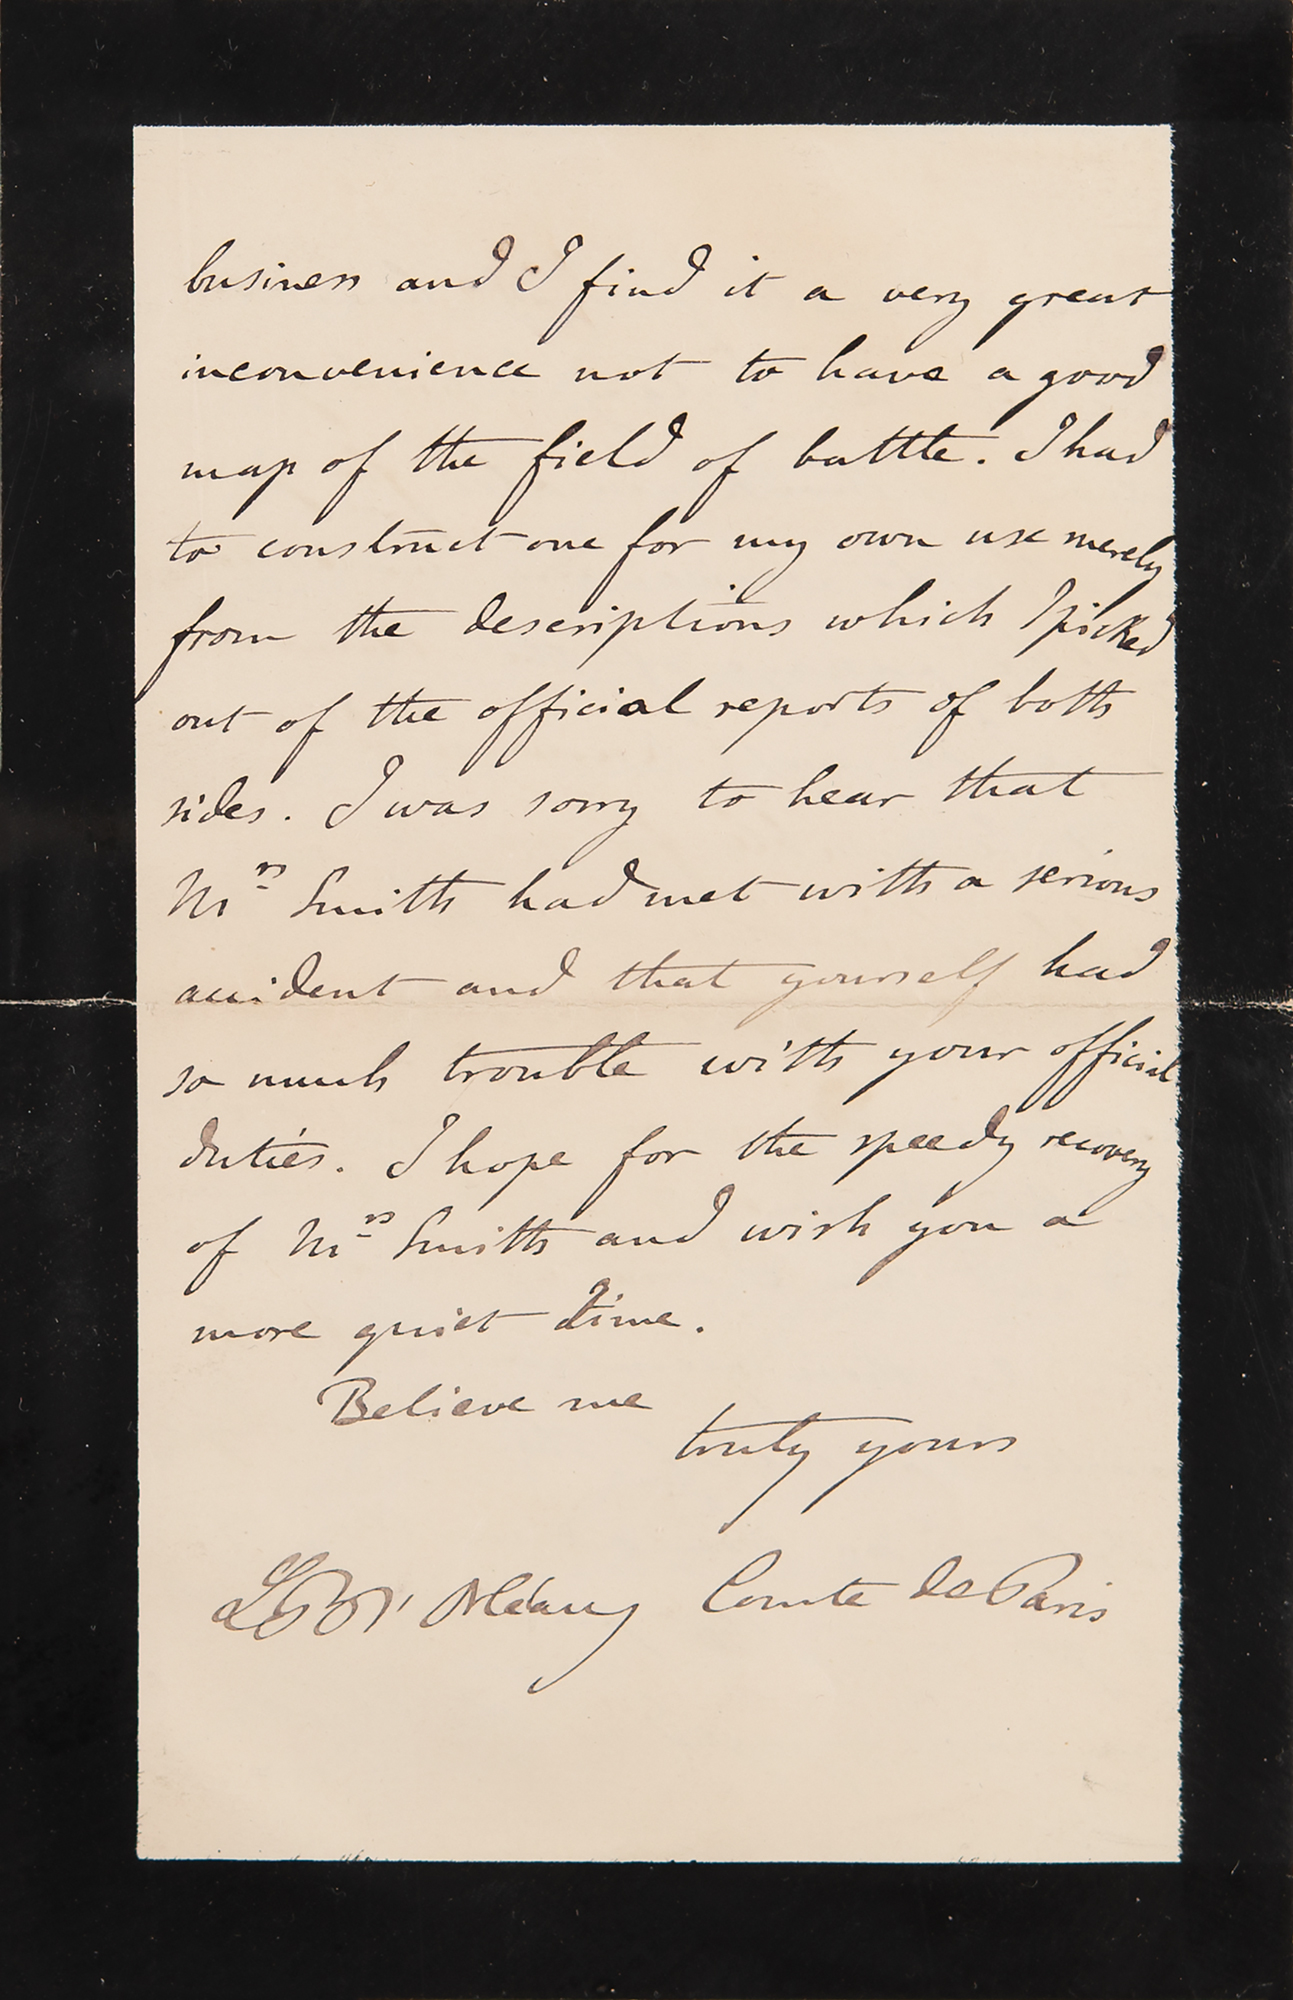 business and I find it a very great
inconvenience not to have a good
map of the field of battle. I had
to construct one for my own use merely
from the descriptions which I picked
out of the official reports of both
sides. I was sorry to hear that
Mrs Smith had met with a serious
accident and that yourself had
so much trouble with your official
duties. I hope for the speedy recovery
of Mrs Smith and wish you a
more quiet time.
Believe me
truly yours
d'Orléans Comte de Paris